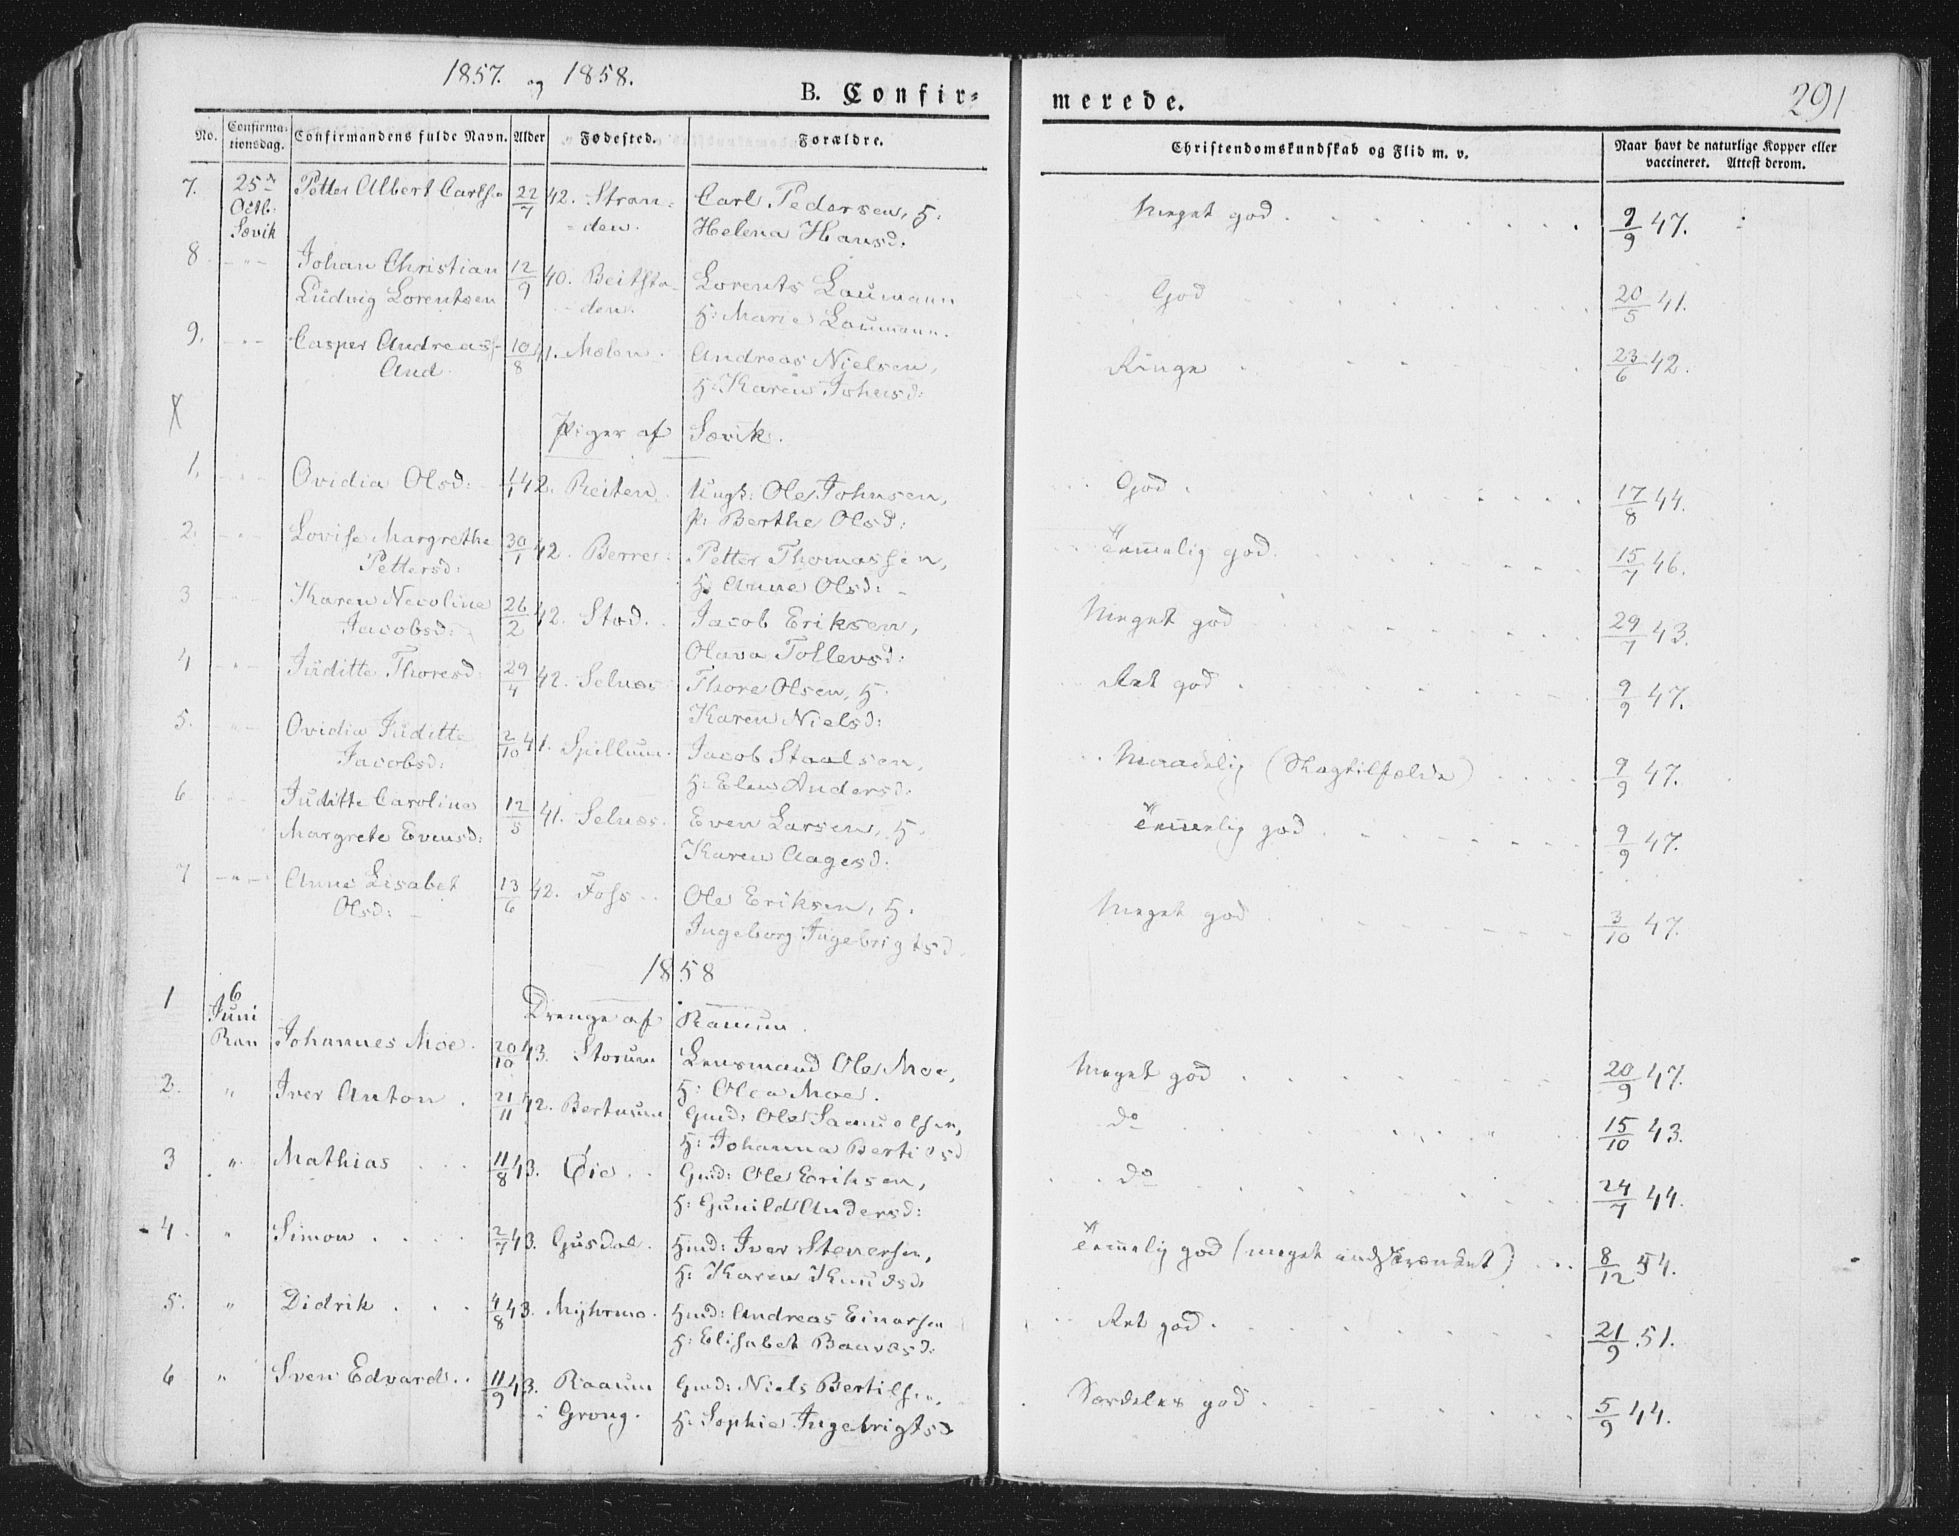 1857. og 1858.
B. Confir=
merede.
291
No.
Confirma-
tionsdag.
Confirmandens fulde Navn.
Alder
Fødested.
Forældre.
Christendomskundskab og Flid m. v.
Naar havt de naturlige Kopper eller
vaccineret. Attest derom.
7. 25de Petter Albert Carlsen 22/7 42. Stran- Carl Pedersen, H: Meget god 9/9 47.
Octb. -den. Helena Hansd.
Sævik
8 Johan Christian 12/9 40. Beitsta- Lorents Laumann God 20/5 41.
Ludvig Lorentsen -den. H: Marie Laumann.
9. Casper Andreas 10/8 41. Molen Andreas Nielsen, Ringe 23/6 42.
And. H: Karen Johnsd:
X
Piger af Sævik.
1. Ovidia Olsd: 42. Reiten Ungk: Ole Johnsen, God 17/8 44.
P: Berthe Olsd:
2. Lovise Margrethe 30/1 42. Berre Petter Thomassen, Temmelig god. 15/7 46.
Pettersd: H: Anne Olsd:
3 Karen Nicoline 26/2 42. Stod. Jacob Eriksen, Meget god 29/7 43.
Jacobsd: Olava Tollevsd:
4 Juditte Thoresd 29/4 42. Selnæs Thore Olsen, H. Ret god 9/9 47.
Karen Nielsd:
5. Ovidia Juditte 2/10 41. Spillum. Jacob Staalsen, Maadelig (Slagtilfælde) 9/9 47.
Jacobsd: H: Elen Andersd.
6 Juditte Caroline 12/5 41. Selnæs. Even Larsen, H. Temmelig god 9/9 47.
Margrete Evensd: Karen Aagesd.
7 Anne Lisabet 13/6 42. Foss Ole Eriksen, H. Meget god 3/10 47.
Olsd: Ingeborg Ingebrigtsd.
1858
1 6 Drenge af Ranum.
Juni
Ran Johannes Moe. 20/10 43. Storum Lensmand Ole Moe, Meget god 20/9 47.
H: Olea Moe.
2. " Iver Anton. 21/11 42. Bertnum Gmd: Ole Samuelsen, do 15/10 43.
H: Johanna Bertilsd
3 " Mathias 11/8 43. Øie Gmd: Ole Eriksen, do 24/7 44.
H: Gunild Andersd:
4. " Simon 2/7 43. Gusdal. Hmd: Iver Stenersen, Temmelig god (meget indskrænket) 8/12 54.
H: Karen Knudsd.
5. " Didrik 4/8 43. Myhrmo. Hmd: Andreas Einarsen Ret god. 21/9 51.
H: Elisabet Baarsd:
6 " Sven Edvard 11/9 43. Raaum Gmd: Niels Bertilsen, Særdeles god. 5/9 44.
i Grong. H: Sophie Ingebrigtsd